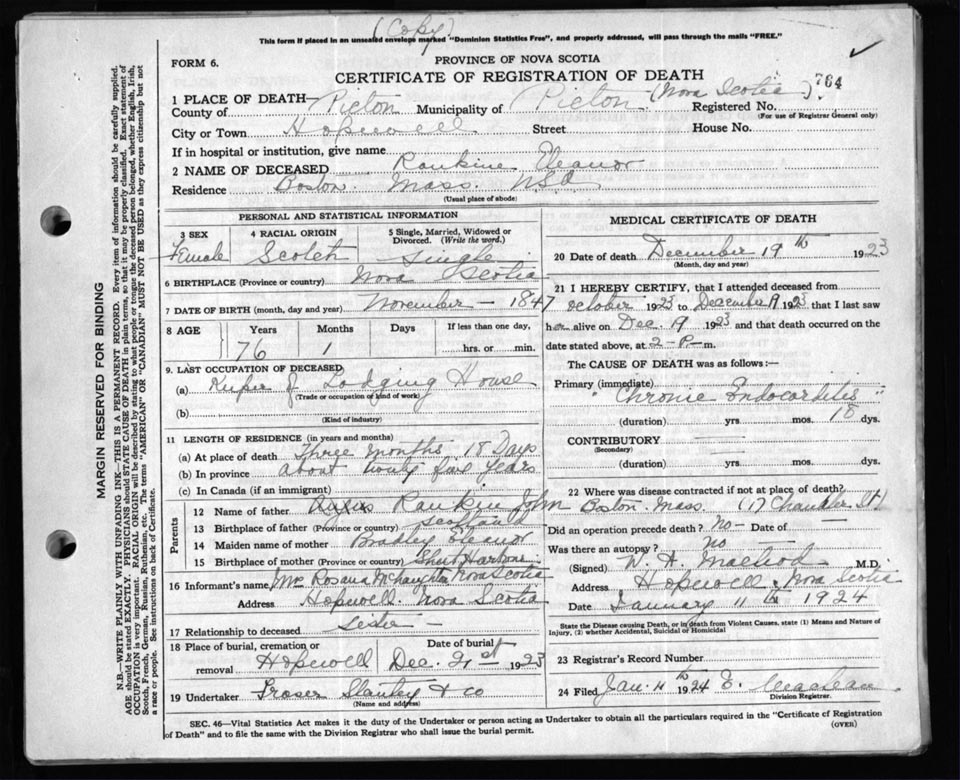 (Copy)
This form if placed in an unsealed envelope marked "Dominion Statistics Free", and properly addressed, will pass through the mails "FREE."
FORM 6.
PROVINCE OF NOVA SCOTIA
CERTIFICATE OF REGISTRATION OF DEATH
764
1 PLACE OF DEATH—
County of Pictou Municipality of Pictou (Nova Scotia) Registered No.
(For use of Registrar General only)
City or Town Hopewell Street House No.
If in hospital or institution, give name
2 NAME OF DECEASED Rankine Eleanor
Residence Boston. Mass. USA
(Usual place of abode)
PERSONAL AND STATISTICAL INFORMATION
3 SEX 4 RACIAL ORIGIN 5 Single, Married, Widowed or Divorced. (Write the word.)
Female Scotch Single
6 BIRTHPLACE (Province or country) Nova Scotia
7 DATE OF BIRTH (month, day and year) November — 1847
8 AGE Years Months Days If less than one day,
76 1 hrs. or min.
9. LAST OCCUPATION OF DECEASED
(a) Keeper of Lodging House
(Trade or occupation or kind of work)
(b)
(Kind of industry)
11 LENGTH OF RESIDENCE (in years and months)
(a) At place of death Three months 18 Days
(b) In province about twenty five years
(c) In Canada (if an immigrant)
Parents
12 Name of father Rankin John
13 Birthplace of father (Province or country) Scotland
14 Maiden name of mother Bradley Eleanor
15 Birthplace of mother (Province or country) Sheet Harbour Nova Scotia
16 Informant's name Mrs Rosana McNaughton
Address Hopewell. Nova Scotia
17 Relationship to deceased Sister —
18 Place of burial, cremation or removal Hopewell Date of burial Dec. 21st 1923
19 Undertaker Fraser Stanley & co
(Name and address)
MEDICAL CERTIFICATE OF DEATH
20 Date of death December 19th 1923
(Month, day and year)
21 I HEREBY CERTIFY, that I attended deceased from
October 1923 to December 19 1923 that I last saw
her alive on Dec. 19 1923 and that death occurred on the
date stated above, at 2-P-m.
The CAUSE OF DEATH was as follows:—
Primary (immediate)
"Chronic Endocarditis"
(duration) yrs. mos. 18 dys.
CONTRIBUTORY
(Secondary)
(duration) yrs. mos. dys.
22 Where was disease contracted if not at place of death?
Boston. Mass. (17 Chandler St)
Did an operation precede death? no— Date of —
Was there an autopsy? no —
(Signed) W. A. Macleod — M.D.
Address Hopewell. Nova Scotia
Date January 11th 1924
State the Disease causing Death, or in death from Violent Causes, state (1) Means and Nature of Injury, (2) whether Accidental, Suicidal or Homicidal
23 Registrar's Record Number
24 Filed Jan. 11th 1924 E. Maclean
Division Registrar.
SEC. 46—Vital Statistics Act makes it the duty of the Undertaker or person acting as Undertaker to obtain all the particulars required in the "Certificate of Registration
of Death" and to file the same with the Division Registrar who shall issue the burial permit.
(OVER)
MARGIN RESERVED FOR BINDING
N.B.—WRITE PLAINLY WITH UNFADING INK—THIS IS A PERMANENT RECORD. Every item of information should be carefully supplied.
AGE should be stated EXACTLY. PHYSICIANS should STATE CAUSE OF DEATH in plain terms, so that it may be properly classified. Exact statement of
OCCUPATION is very important. RACIAL ORIGIN will be described by stating to what people or tongue the deceased person belonged, whether English, Irish,
Scotch, French, German, Russian, Ruthenian, etc. The terms "AMERICAN" OR "CANADIAN" MUST NOT BE USED as they express citizenship but not
a race or people. See instructions on back of Certificate.